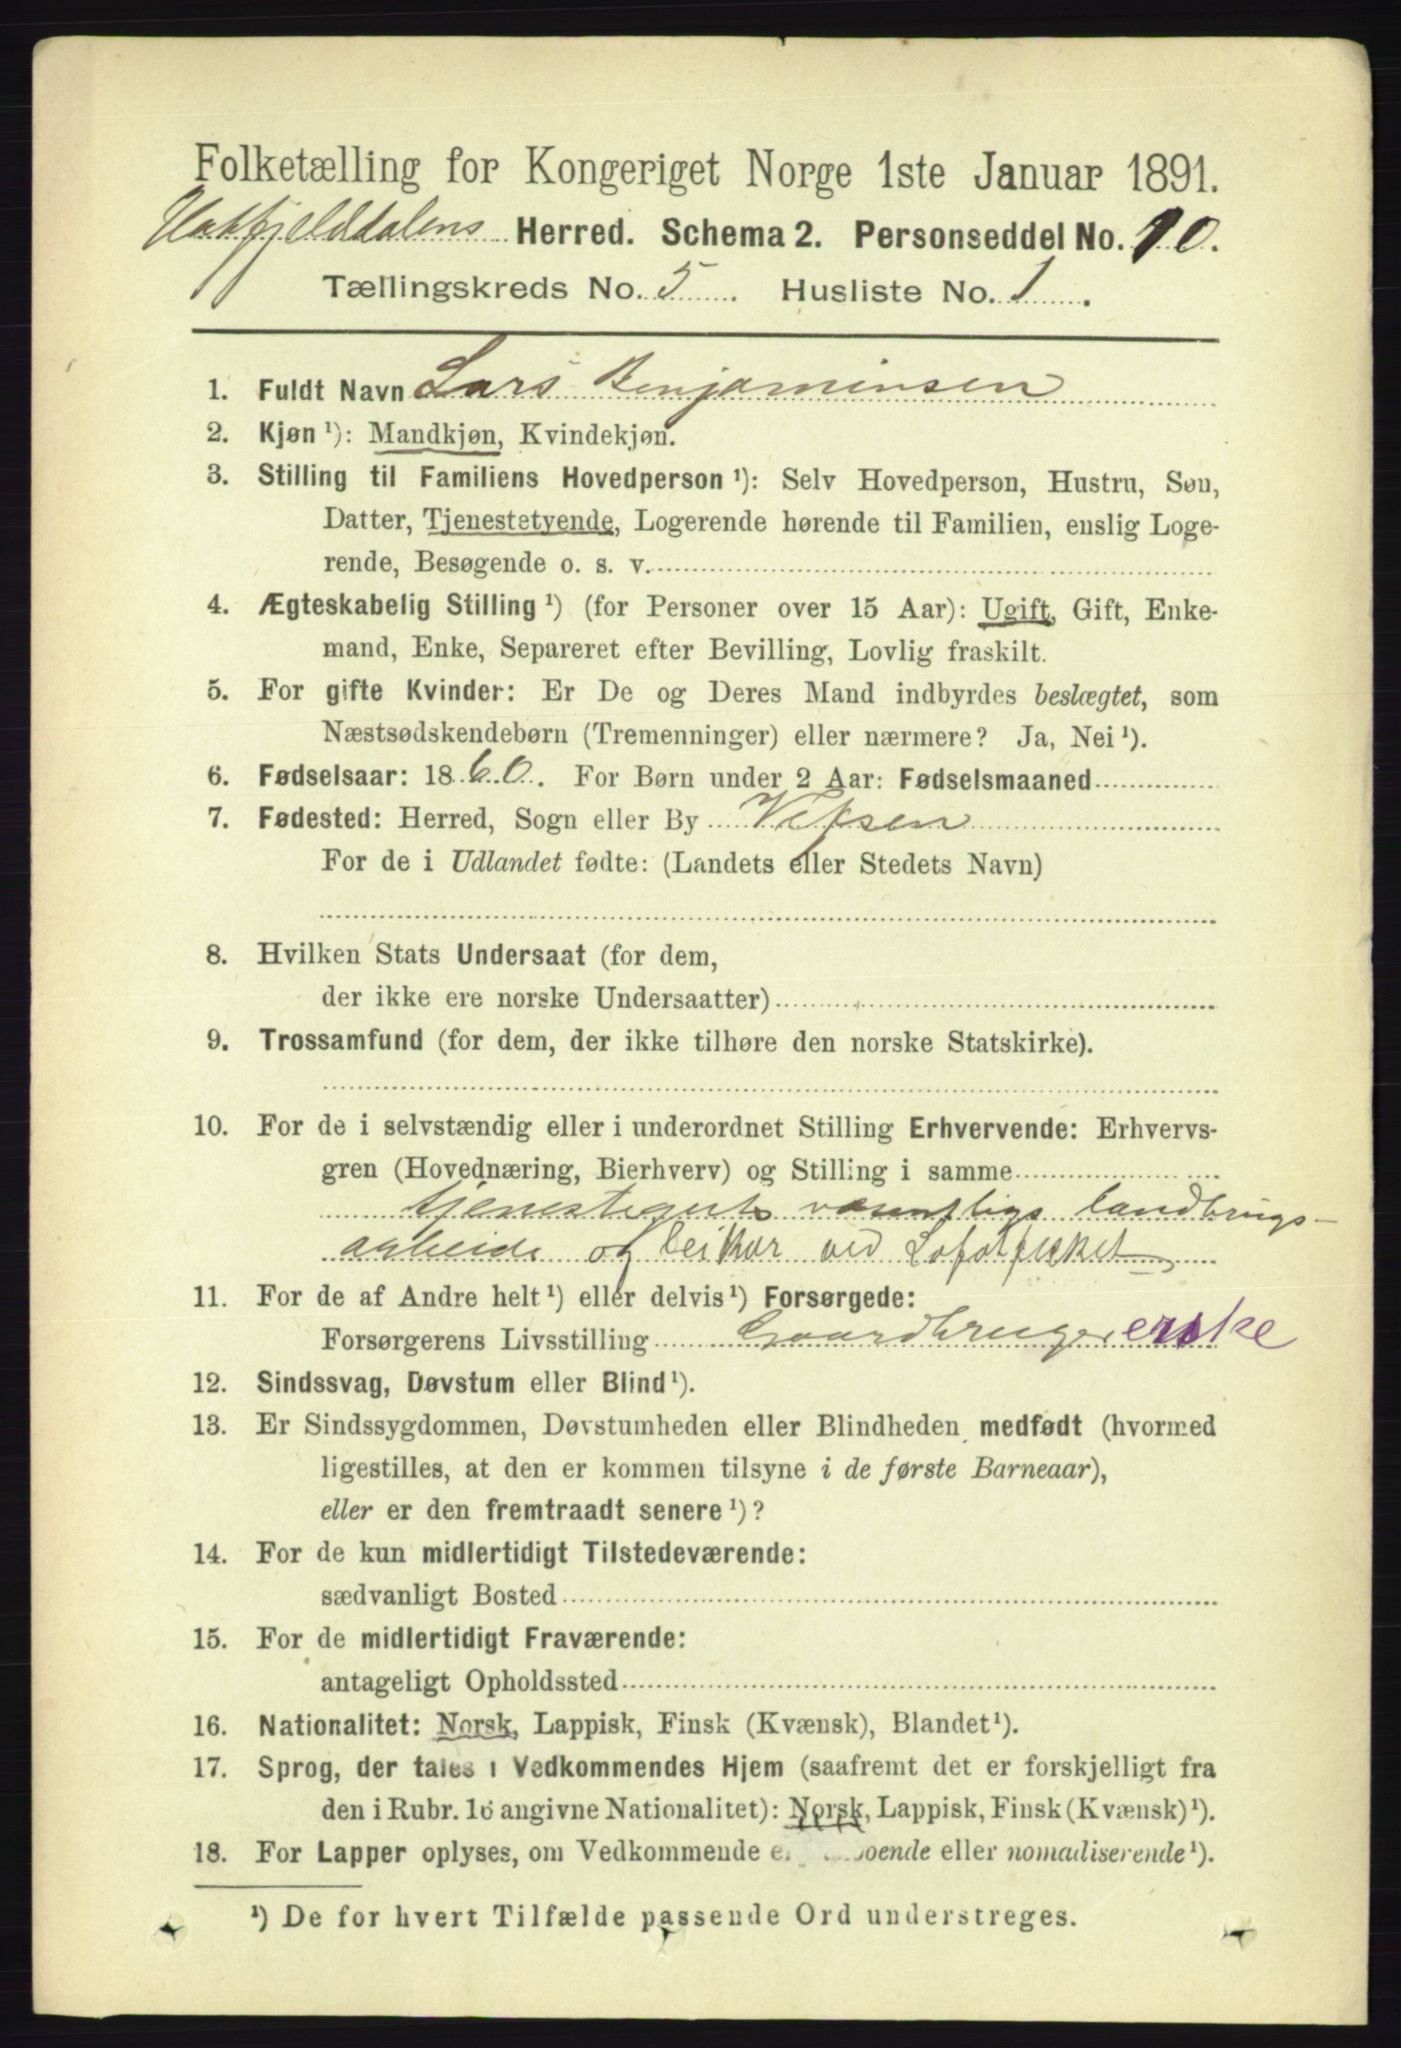 Folketælling for Kongeriget Norge 1ste Januar 1891.
Hatfjelddalens Herred. Schema 2. Personseddel No. 10.
Tællingskreds No. 5. Husliste No. 1.
1. Fuldt Navn Lars Benjaminsen
2. Kjøn ¹): Mandkjøn, Kvindekjøn.
3. Stilling til Familiens Hovedperson ¹): Selv Hovedperson, Hustru, Søn,
Datter, Tjenestetyende, Logerende hørende til Familien, enslig Loge-
rende, Besøgende o. s. v.
4. Ægteskabelig Stilling ¹) (for Personer over 15 Aar): Ugift, Gift, Enke-
mand, Enke, Separeret efter Bevilling, Lovlig fraskilt.
5. For gifte Kvinder: Er De og Deres Mand indbyrdes beslægtet, som
Næstsødskendebørn (Tremenninger) eller nærmere? Ja, Nei ¹).
6. Fødselsaar: 1860. For Børn under 2 Aar: Fødselsmaaned
7. Fødested: Herred, Sogn eller By Vefsen
For de i Udlandet fødte: (Landets eller Stedets Navn)
8. Hvilken Stats Undersaat (for dem,
der ikke ere norske Undersaatter)
9. Trossamfund (for dem, der ikke tilhøre den norske Statskirke).
10. For de i selvstændig eller i underordnet Stilling Erhvervende: Erhvervs-
gren (Hovednæring, Bierhverv) og Stilling i samme
tjenestegut væsentligs landbrugs-
arbeide og leikar ved Lofotfisket
11. For de af Andre helt ¹) eller delvis ¹) Forsørgede:
Forsørgerens Livsstilling Gaardbrugererske
12. Sindssvag, Døvstum eller Blind ¹).
13. Er Sindssygdommen, Døvstumheden eller Blindheden medfødt (hvormed
ligestilles, at den er kommen tilsyne i de første Barneaar),
eller er den fremtraadt senere ¹)?
14. For de kun midlertidigt Tilstedeværende:
sædvanligt Bosted
15. For de midlertidigt Fraværende:
antageligt Opholdssted
16. Nationalitet: Norsk, Lappisk, Finsk (Kvænsk), Blandet ¹).
17. Sprog, der tales i Vedkommendes Hjem (saafremt det er forskjelligt fra
den i Rubr. 16 angivne Nationalitet): Norsk, Lappisk, Finsk (Kvænsk) ¹).
18. For Lapper oplyses, om Vedkommende eller nomadiserende ¹).
¹) De for hvert Tilfælde passende Ord understreges.